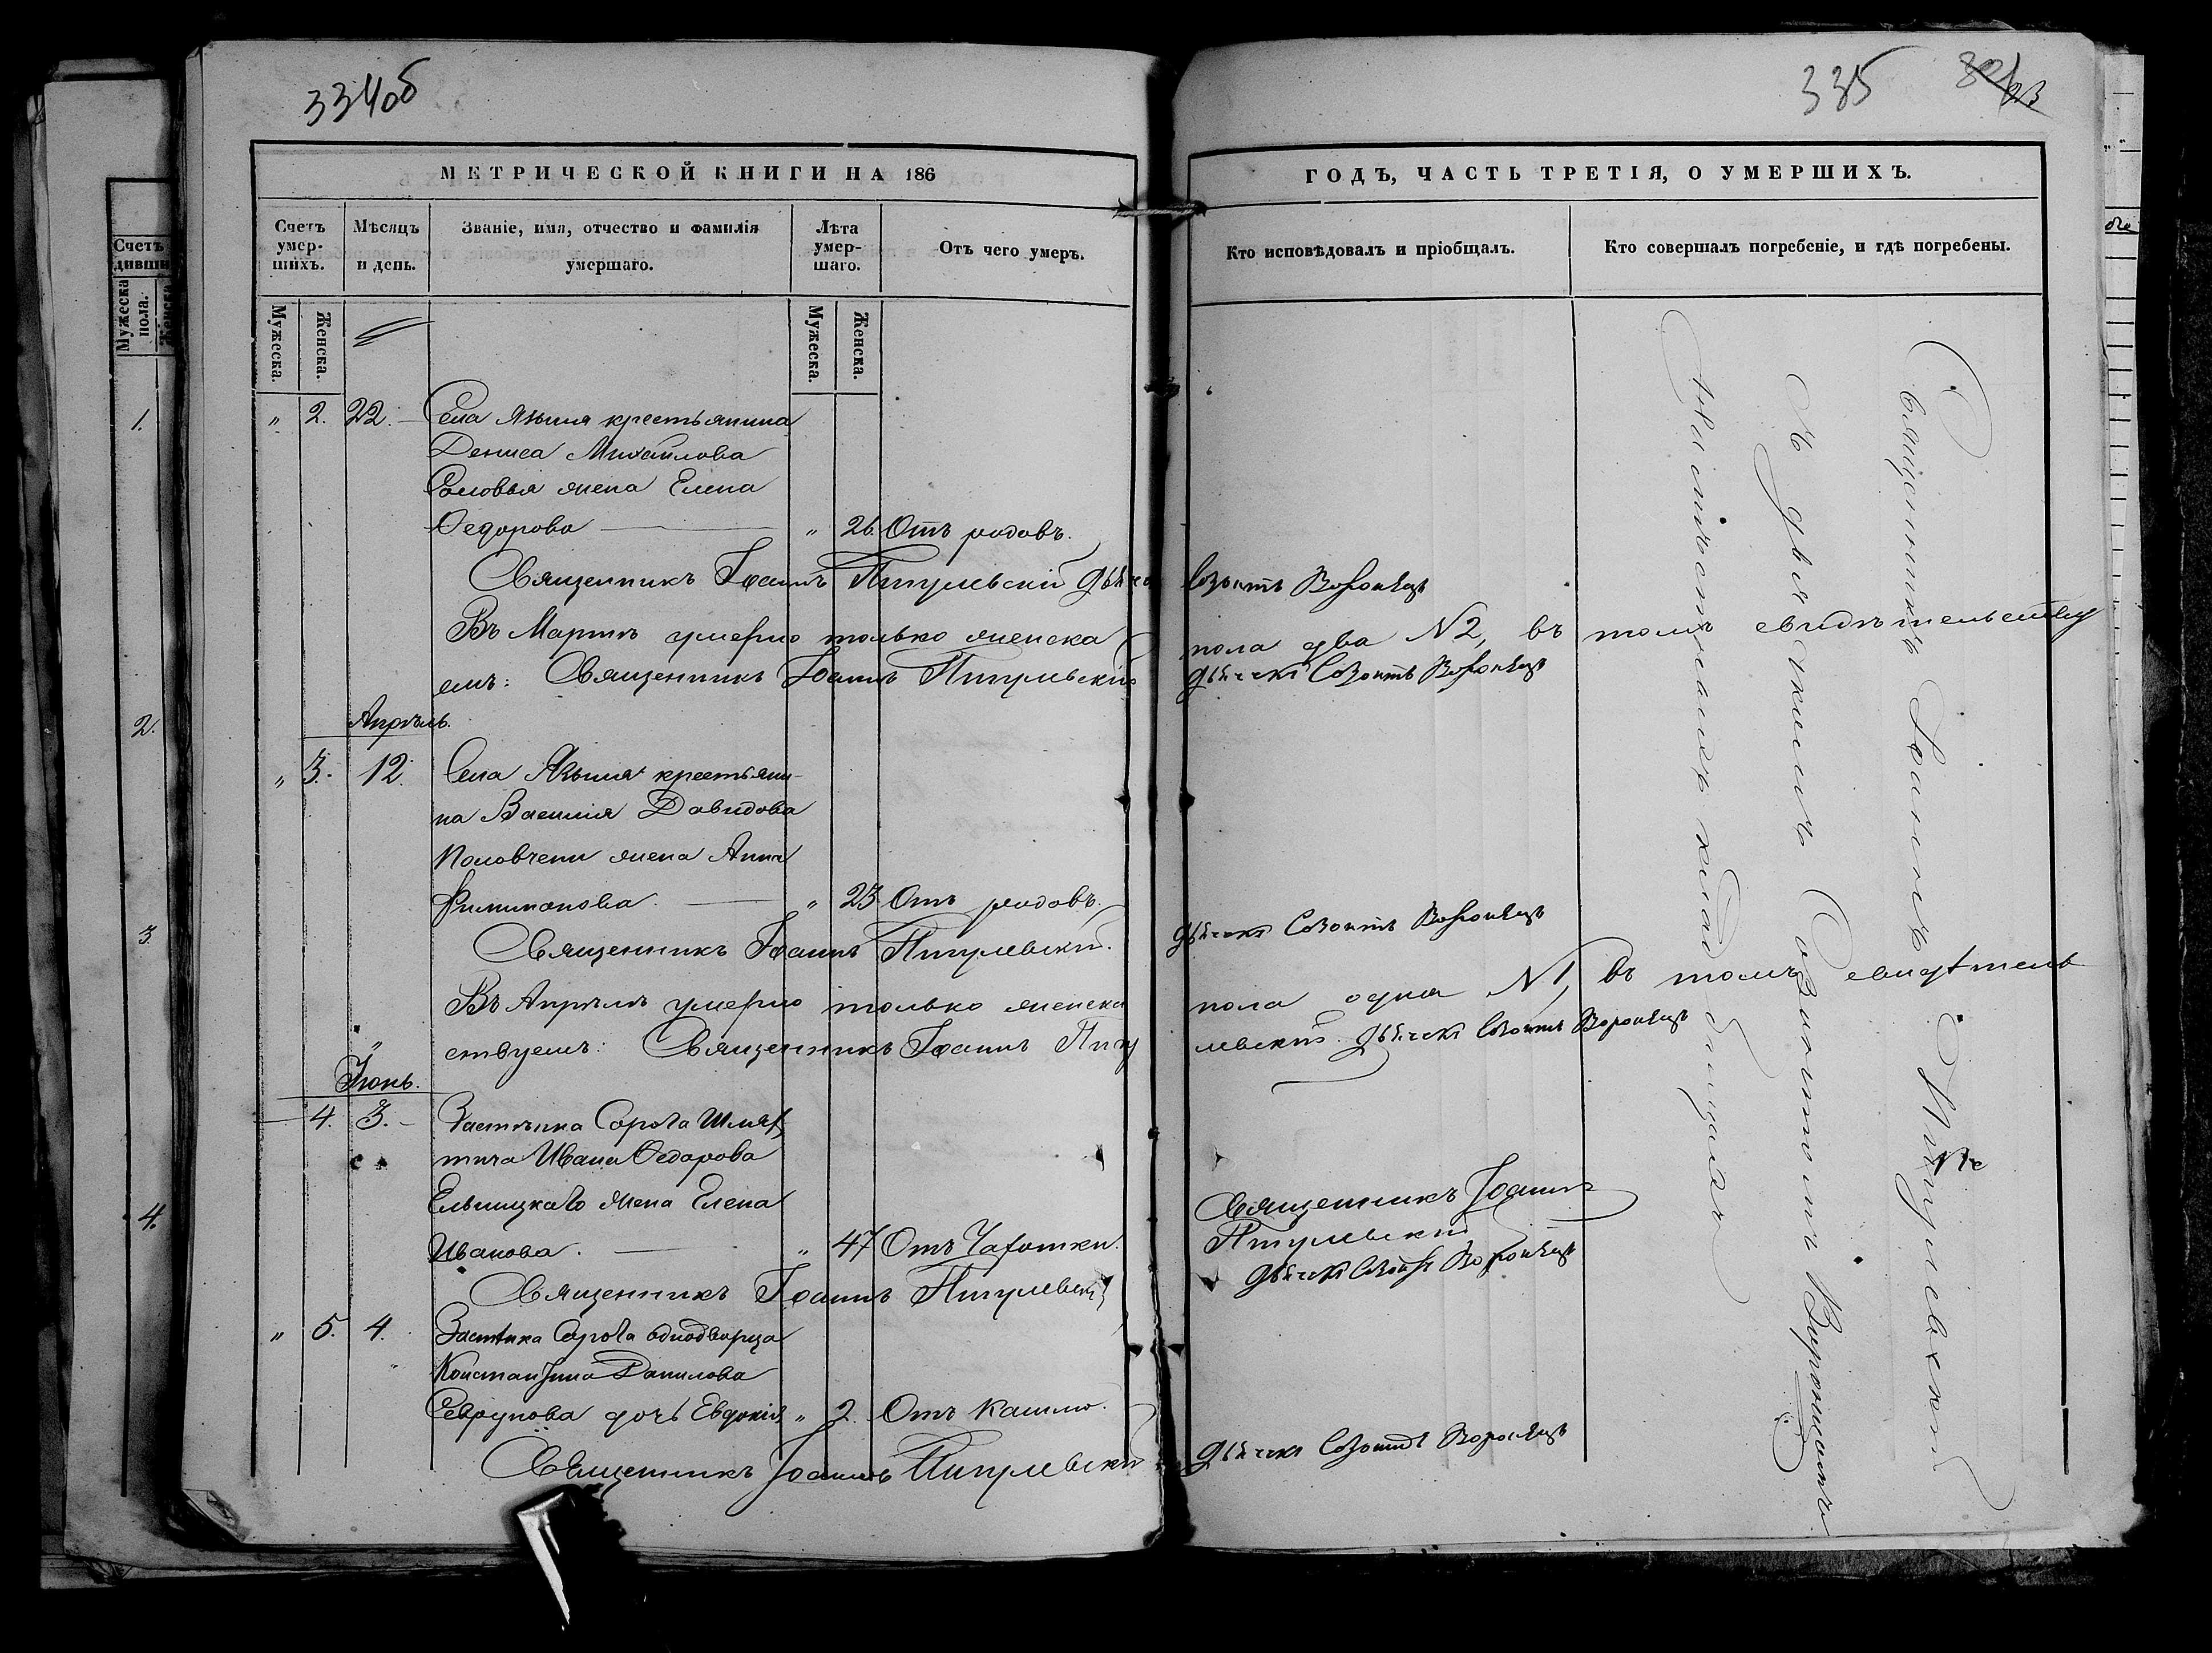 334об
335
МЕТРИЧЕСКОЙ КНИГИ НА 186
ГОДЪ, ЧАСТЬ ТРЕТІЯ, О УМЕРШИХЪ.
Счетъ умер-шихъ.
Мѣсяцъ и день.
Званіе, имя, отчество и фамилія умершаго.
Лѣта умер-шаго.
Отъ чего умеръ.
Кто исповѣдовалъ и пріобщалъ.
Кто совершалъ погребеніе, и гдѣ погребены.
Мужеска.
Женска.
Мужеска.
Женска.
" 2. 22. Села Языля крестьянина
Дениса Михайлова
Соловья жена Елена
Ѳедорова " 26. Отъ родовъ.
Священникъ Іоаннъ Пигулевскій дьячекъ Созонтъ Воронецъ
Въ Мартѣ умерло только женска пола два №2, въ томъ свидѣтельству
емъ: Священникъ Іоаннъ Пигулевскій дьячекъ Созонтъ Воронецъ
Апрѣль.
" 3. 12. Села Языля крестьяни-
на Василія Давидова
Половчени жена Анна
" 23 Отъ родовъ.
Священникъ Іоаннъ Пигулевскій. дьячекъ Созонтъ Воронецъ
Въ Апрѣлѣ умерло только женска пола одна №1, въ томъ свидѣтель
ствуемъ: Священникъ Іоаннъ Пигулевскій. дьячекъ Созонтъ Воронецъ
Іюнь.
4. 3. Застѣнка Сорога Шлях
тича Ивана Ѳедорова
Ельницкаго жена Елена
Иванова. " 47 Отъ Чахотки.
Священникъ Іоаннъ
Пигулевскій
дьячекъ Созонтъ Воронецъ
Священникъ Іоаннъ Пигулевскій
" 5. 4. Застѣнка Сорога однодворца
Константина Данилова
Севрукова дочь Евдокія " 2. Отъ кашлю.
Священникъ Іоаннъ Пигулевскій дьячекъ Созонтъ Воронецъ
Священникъ Іоаннъ Пигулевскій
съ дьячкомъ Созонтомъ Воронцомъ
на мѣстномъ кладбищѣ
Счетъ
Мужеска пола.
1.
2.
3.
4.